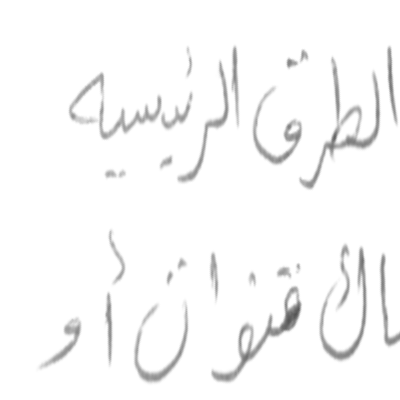 الطرق الرئيسيه
قنوان أو